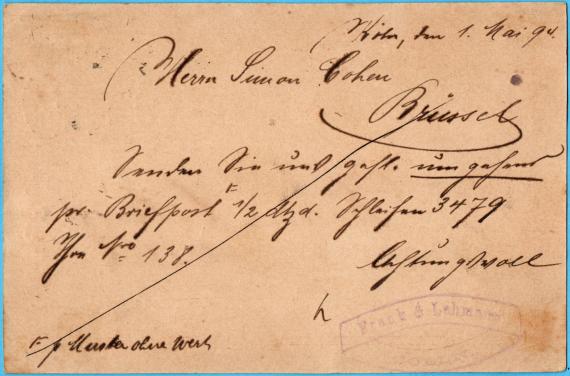 Köln, den 1. Mai 94.
Herrn Simon Cohen
Brüssel
Senden Sie uns gefl. umgehend
pr. Briefpost F 1/2 Dtzd. Schleifen 3479
Ihre Nro 138.
Achtungsvoll
F p Muster ohne Wert
Frank & Lehmann